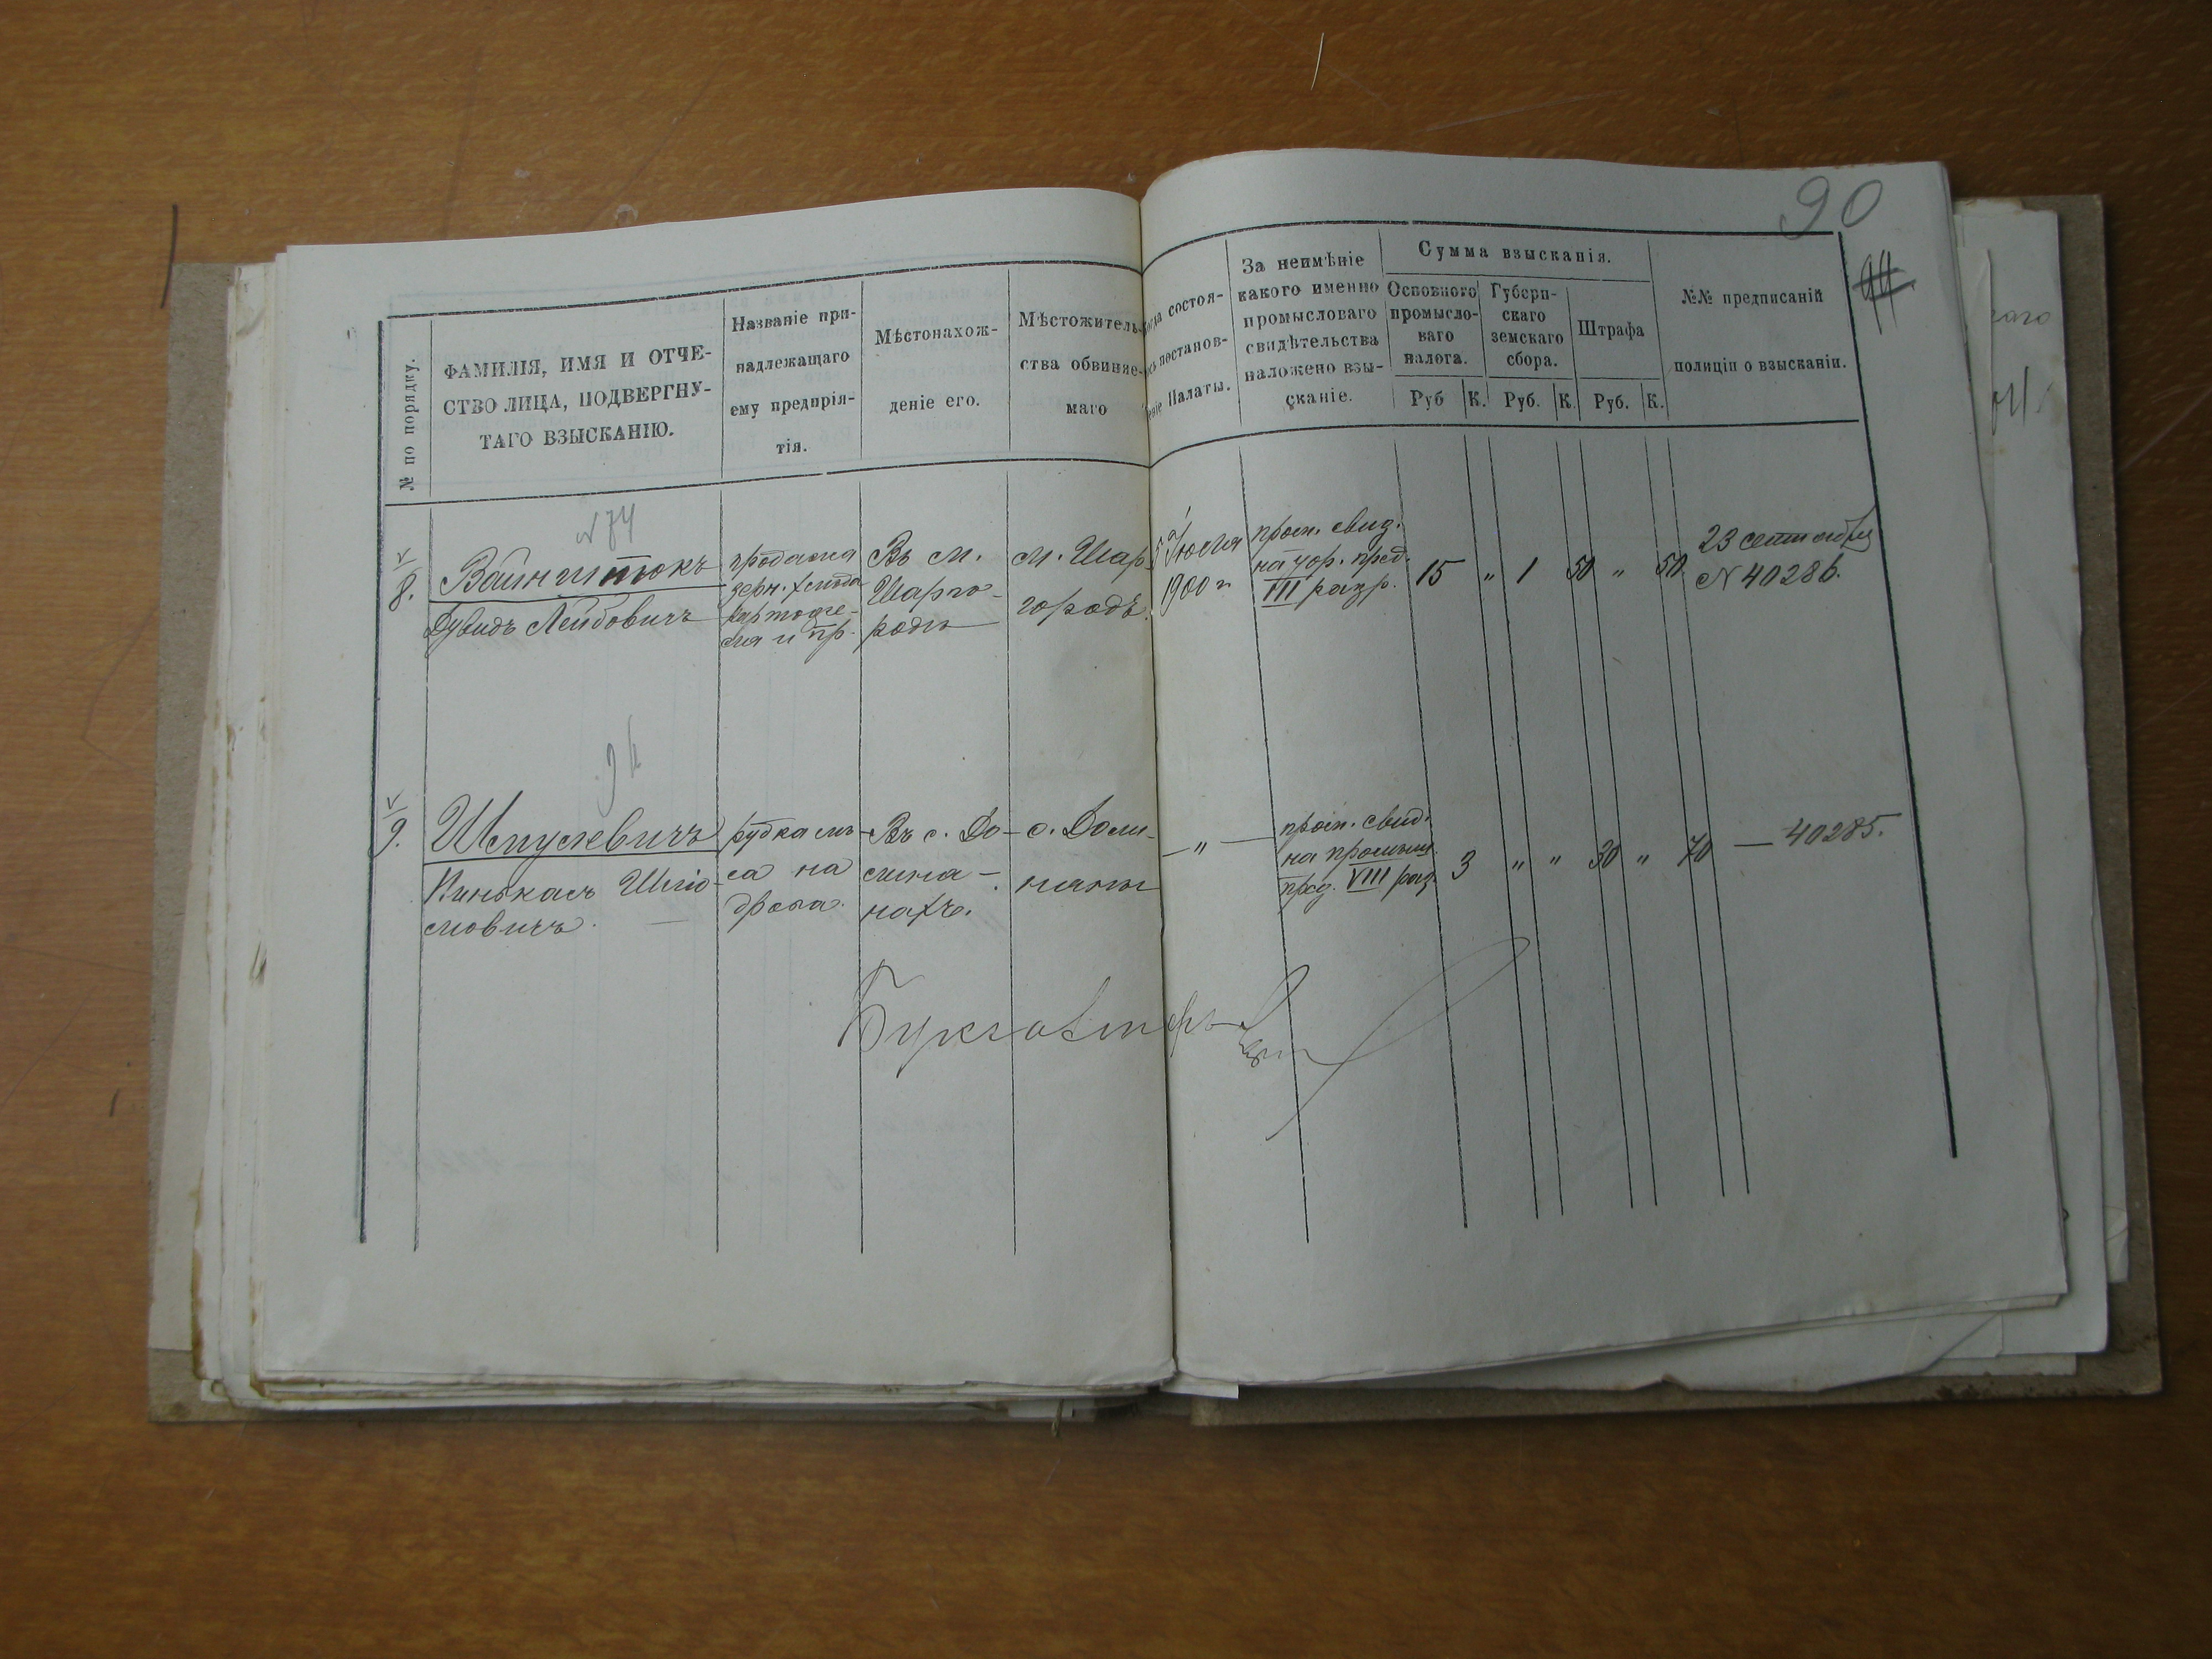 90
№ по порядку.
ФАМИЛІЯ, ИМЯ И ОТЧЕ-
СТВО ЛИЦА, ПОДВЕРГНУ-
ТАГО ВЗЫСКАНІЮ.
Названіе при-
надлежащаго
ему предпрія-
тія.
Мѣстонахож-
деніе его.
Мѣстожитель-
ства обвиняе-
маго
состоя-
постанов-
Палаты.
За неимѣніе
какого именно
промысловаго
свидѣтельства
наложено взы-
сканіе.
Сумма взысканія.
Основного
промысло-
ваго
налога.
Губерн-
скаго
земскаго
сбора.
Штрафа
Руб К. Руб. К. Руб. К.
№№ предписаній
полиціи о взысканіи.
8.
N 74
Вайнштокъ
Дувидъ Лейбовичъ
продажа
зерн. хлѣба
картофе-
ля и пр.
Въ м.
Шарго-
родѣ
м. Шар-
городъ.
5 Іюля
1900 г.
пром. свид.
на тор. пред.
III разр.
15 " 1 50 " 50
23 сентября
N 40286.
9.
94
Шмулевичъ
Пинькасъ Шлiо-
мовичъ.
рубка лѣ-
са на
дрова.
Въ с. До-
лина-
нахъ.
с. Доли-
няны
— " —
пром. свид.
на промыш.
пред. VIII раз.
3 " " 30 " 70
— 40285.
Бухгалтеръ